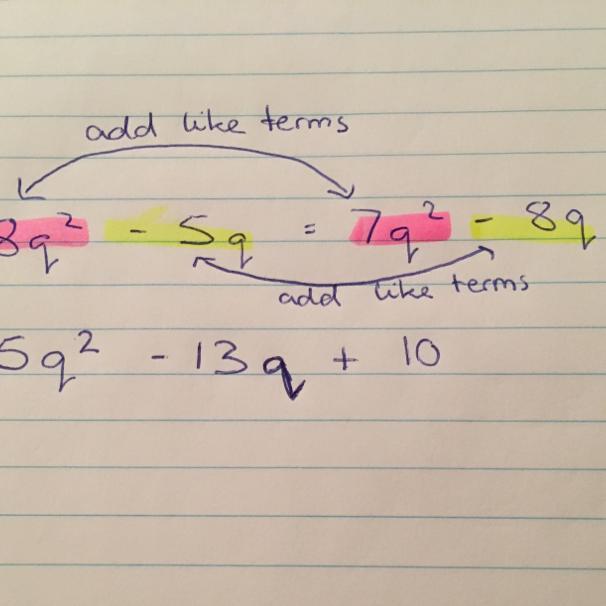 add like terms
8q² - 5q = 7q² - 8q
add like terms
5q² - 13q + 10